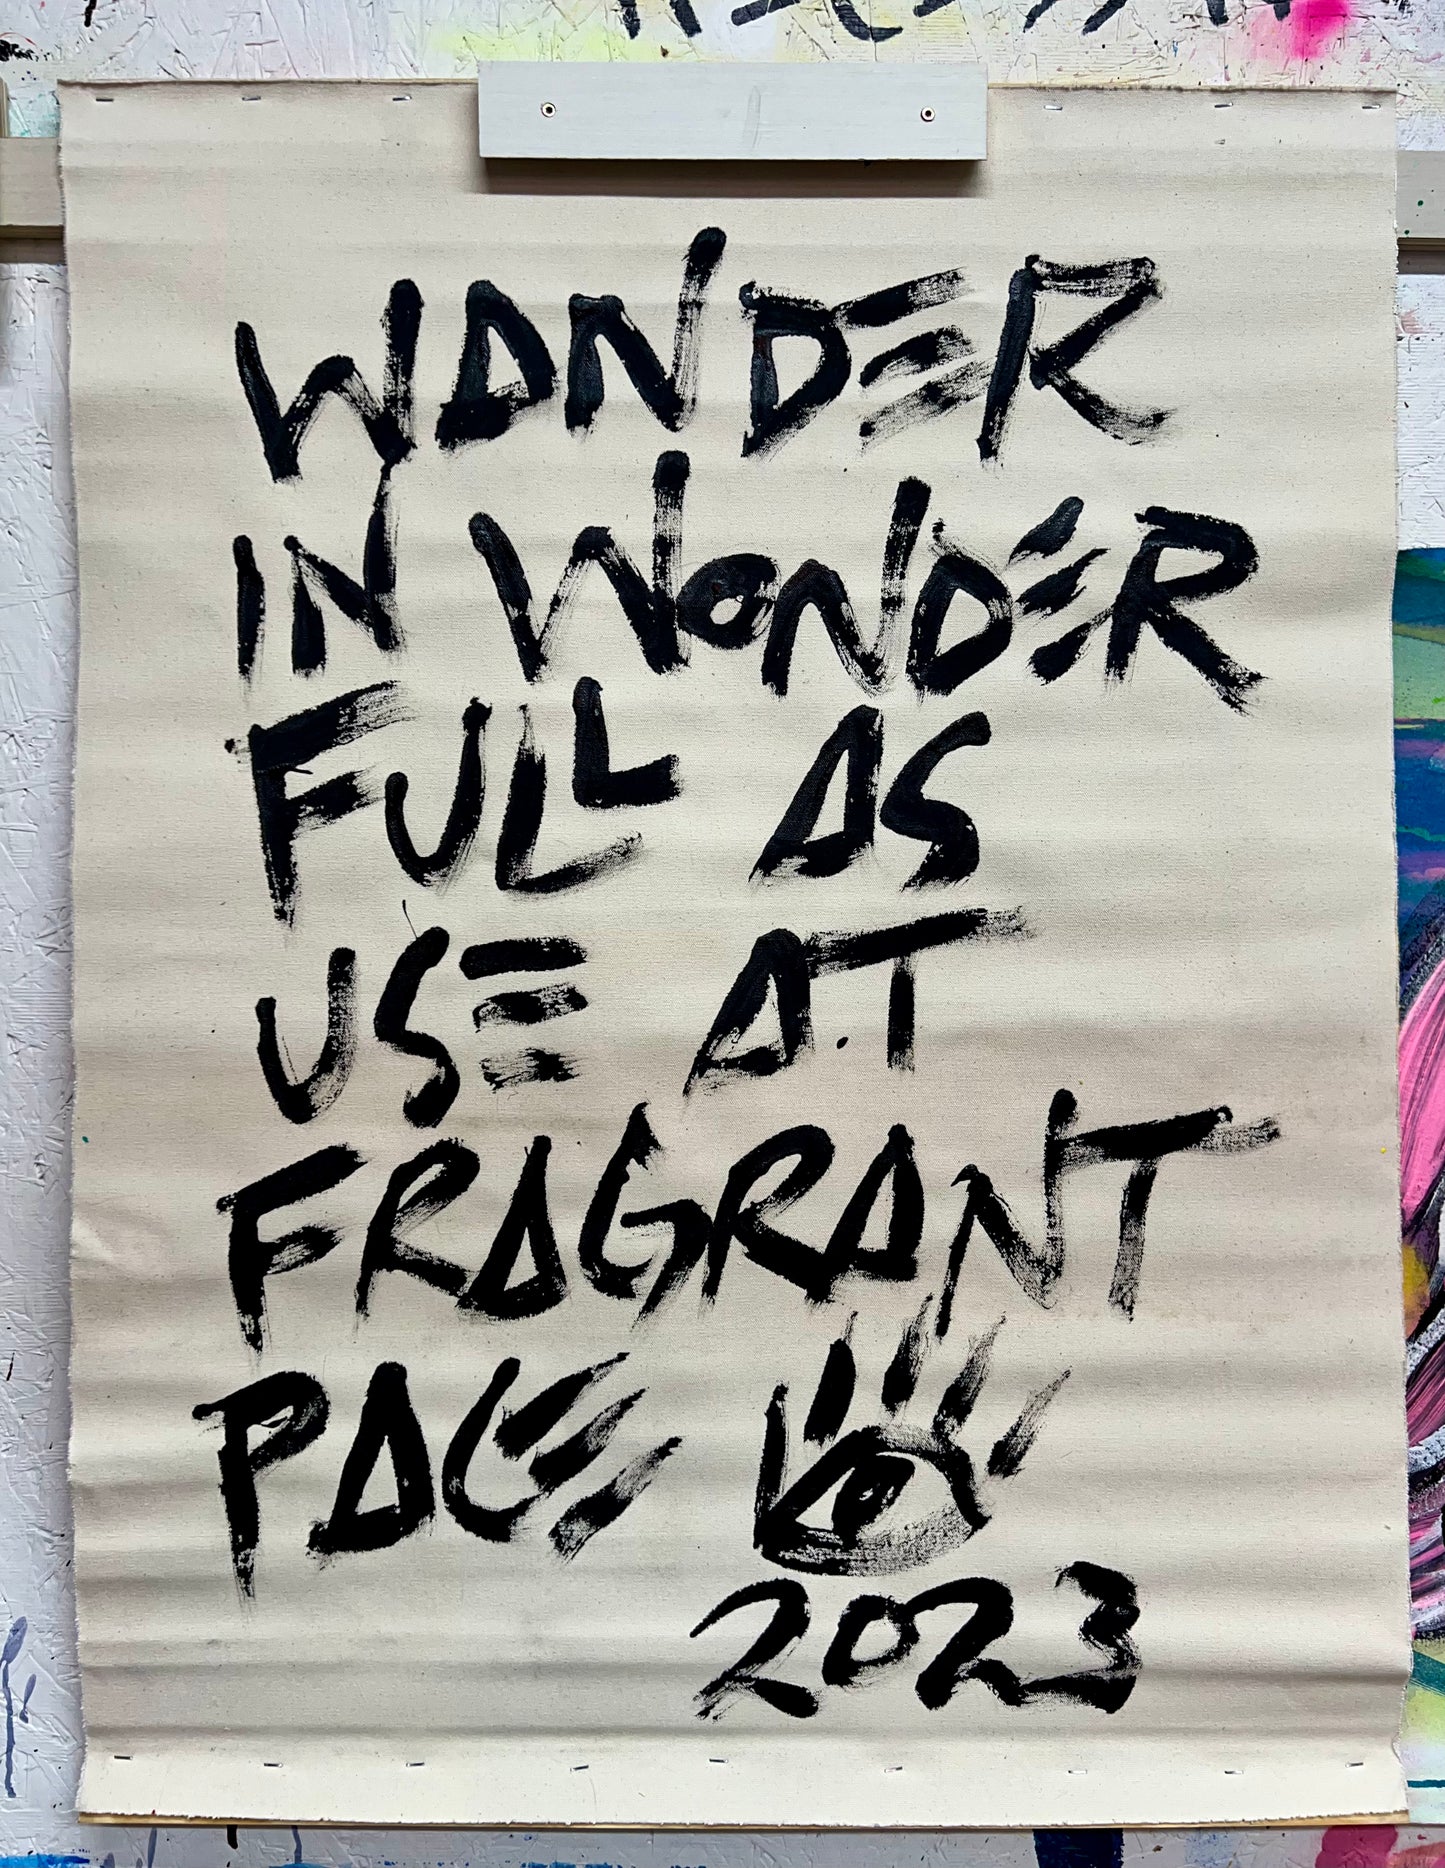 WANDER
IN WONDER
FULL AS
USE A.T
FRAGRANT
PACE
2023